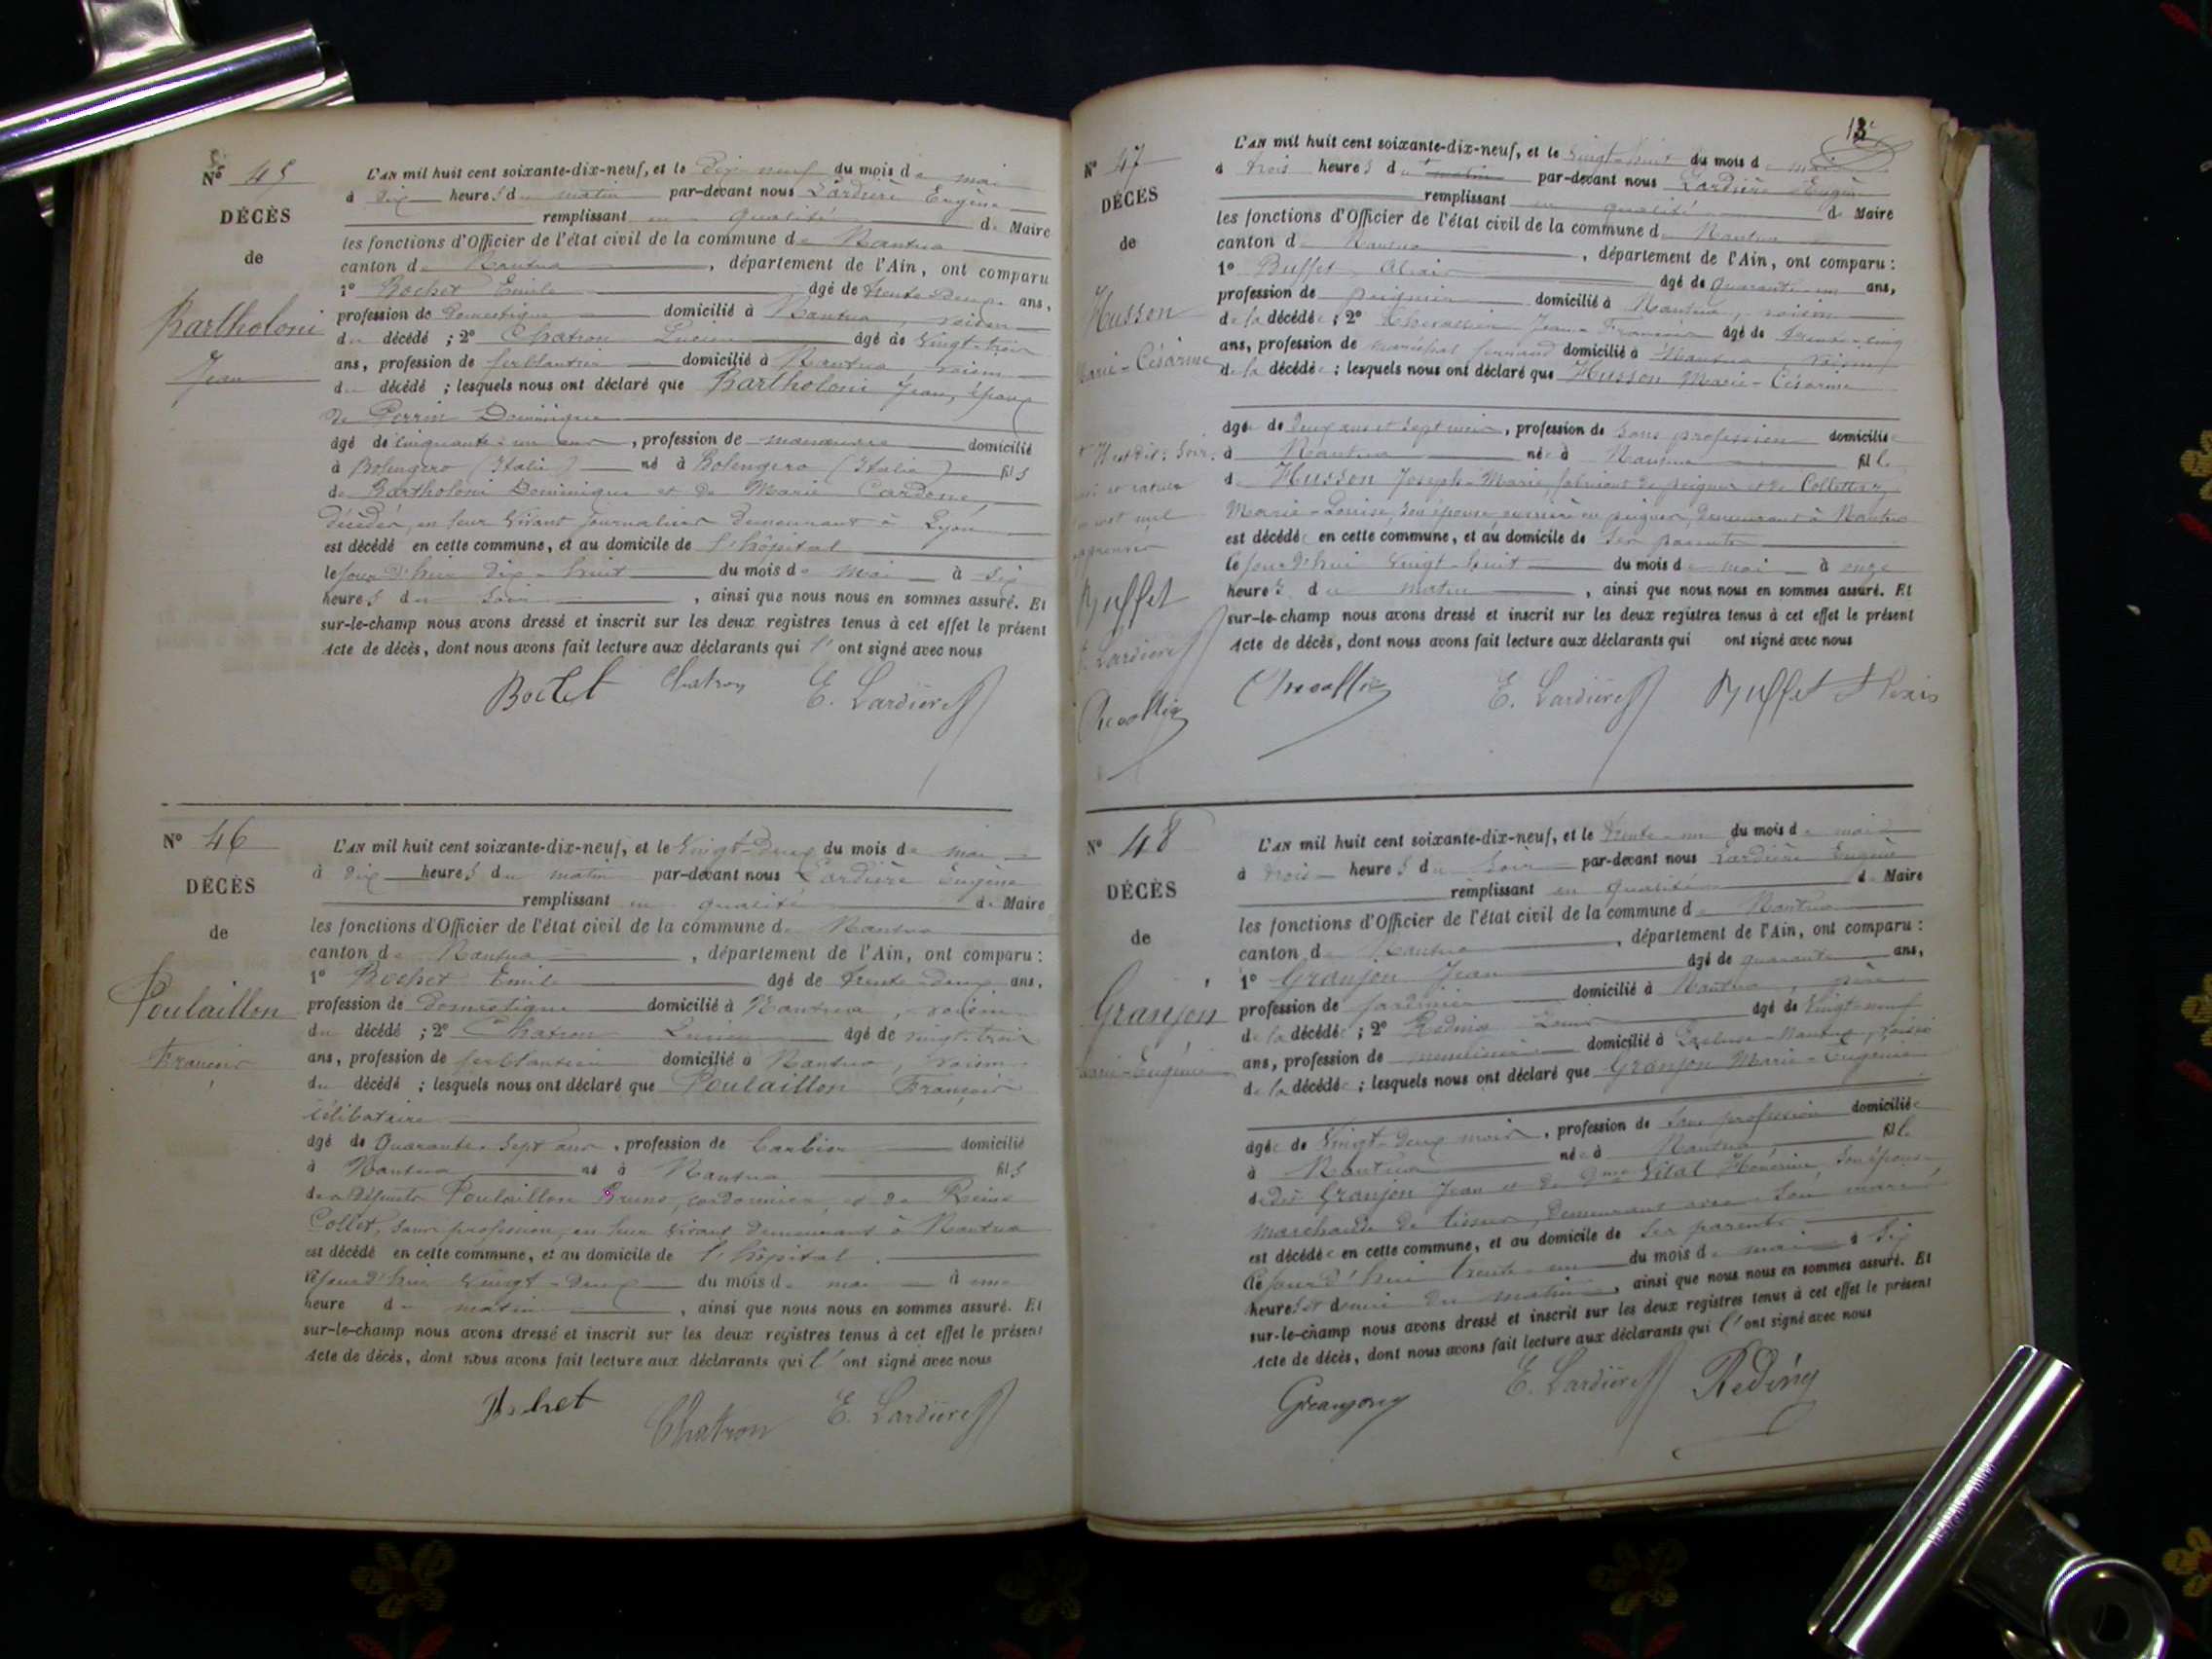 N° 45
DÉCÈS
de
Bartholoni
Jean
L'AN mil huit cent soixante-dix-neuf, et le dix neuf du mois de mai
à dix heures du matin par-devant nous Lardière Eugène
remplissant en qualité de Maire
les fonctions d'Officier de l'état civil de la commune de Nantua
canton de Nantua, département de l'Ain, ont comparu
1° Bochet Emile âgé de trente deux ans,
profession de domestique domicilié à Nantua, voisin
du décédé ; 2° Chatron Lucien âgé de vingt-trois
ans, profession de ferblantier domicilié à Nantua voisin
du décédé ; lesquels nous ont déclaré que Bartholoni Jean, époux
de Perrin Dominique
âgé de cinquante-un ans, profession de manœuvre domicilié
à Bolengero (Italie) né à Bolengero (Italie) fils
de Bartholoni Dominique et de Marie Cardone,
décédés, en leur vivant journaliers demeurant à Lyon
est décédé en cette commune, et au domicile de l'hôpital
le jour d'hier dix-huit du mois de mai à six
heures du soir, ainsi que nous nous en sommes assuré. Et
sur-le-champ nous avons dressé et inscrit sur les deux registres tenus à cet effet le présent
Acte de décès, dont nous avons fait lecture aux déclarants qui l'ont signé avec nous
Bochet Chatron E. Lardière
N° 46
DÉCÈS
de
Poulaillon
François
L'AN mil huit cent soixante-dix-neuf, et le vingt-deux du mois de mai
à dix heures du matin par-devant nous Lardière Eugène
remplissant en qualité de Maire
les fonctions d'Officier de l'état civil de la commune de Nantua
canton de Nantua, département de l'Ain, ont comparu :
1° Bochet Emile âgé de trente-deux ans,
profession de domestique domicilié à Nantua, voisin
du décédé ; 2° Chatron Lucien âgé de vingt-trois
ans, profession de ferblantier domicilié à Nantua, voisin
du décédé ; lesquels nous ont déclaré que Poulaillon François
célibataire
âgé de Quarante-sept ans, profession de barbier domicilié
à Nantua né à Nantua fils
des défunts Poulaillon Bruno, cordonnier, et de Reine
Collet, sans profession, en leur vivant demeurant à Nantua
est décédé en cette commune, et au domicile de l'hôpital.
le jour d'hui vingt-deux du mois de mai à une
heure du matin, ainsi que nous nous en sommes assuré. Et
sur-le-champ nous avons dressé et inscrit sur les deux registres tenus à cet effet le présent
Acte de décès, dont nous avons fait lecture aux déclarants qui l'ont signé avec nous
Bochet Chatron E. Lardière
13
N° 47
DÉCÈS
de
Husson
Marie-Césarine
Buffet
E. Lardière
Chevallier
L'AN mil huit cent soixante-dix-neuf, et le vingt-huit du mois de mai
à trois heures du matin par-devant nous Lardière Eugène
remplissant en qualité de Maire
les fonctions d'Officier de l'état civil de la commune de Nantua
canton de Nantua, département de l'Ain, ont comparu :
1° Buffet Alexis âgé de quarante-un ans,
profession de peignier domicilié à Nantua, voisin
de la décédée ; 2° Chevallier Jean-François âgé de trente-cinq
ans, profession de maréchal ferrand domicilié à Nantua voisin
de la décédée ; lesquels nous ont déclaré que Husson Marie-Césarine
âgée de deux ans et sept mois, profession de sans profession domiciliée
à Nantua née à Nantua fille
de Husson Joseph-Marie, fabricant de peignes et de Collettaz,
Marie-Louise, son épouse ouvrière en peignes, demeurant à Nantua
est décédée en cette commune, et au domicile de ses parents
le jour d'hui vingt-huit du mois de mai à onze
heures du matin, ainsi que nous nous en sommes assuré. Et
sur-le-champ nous avons dressé et inscrit sur les deux registres tenus à cet effet le présent
Acte de décès, dont nous avons fait lecture aux déclarants qui ont signé avec nous
Chevallier E. Lardière Buffet Alexis
N° 48
DÉCÈS
de
Granjon
Marie-Eugénie
L'AN mil huit cent soixante-dix-neuf, et le trente-un du mois de mai
à trois heures du soir par-devant nous Lardière Eugène
remplissant en qualité de Maire
les fonctions d'Officier de l'état civil de la commune de Nantua
canton de Nantua, département de l'Ain, ont comparu :
1° Granjon Jean âgé de quarante ans,
profession de jardinier domicilié à Nantua, père
de la décédée ; 2° Reding Louis âgé de vingt-neuf
ans, profession de domicilié à Nantua, voisin
de la décédée ; lesquels nous ont déclaré que Granjon Marie-Eugénie
âgée de vingt-deux mois, profession de sans profession domiciliée
à Nantua née à Nantua fille
de dit Granjon Jean et de Vital Honorine, son épouse
marchande de tissus, demeurant avec son mari
est décédée en cette commune, et au domicile de ses parents
le jour d'hui trente-un du mois de mai à six
heures et demie du matin, ainsi que nous nous en sommes assuré. Et
sur-le-champ nous avons dressé et inscrit sur les deux registres tenus à cet effet le présent
Acte de décès, dont nous avons fait lecture aux déclarants qui l'ont signé avec nous
Greanjong E. Lardière Reding